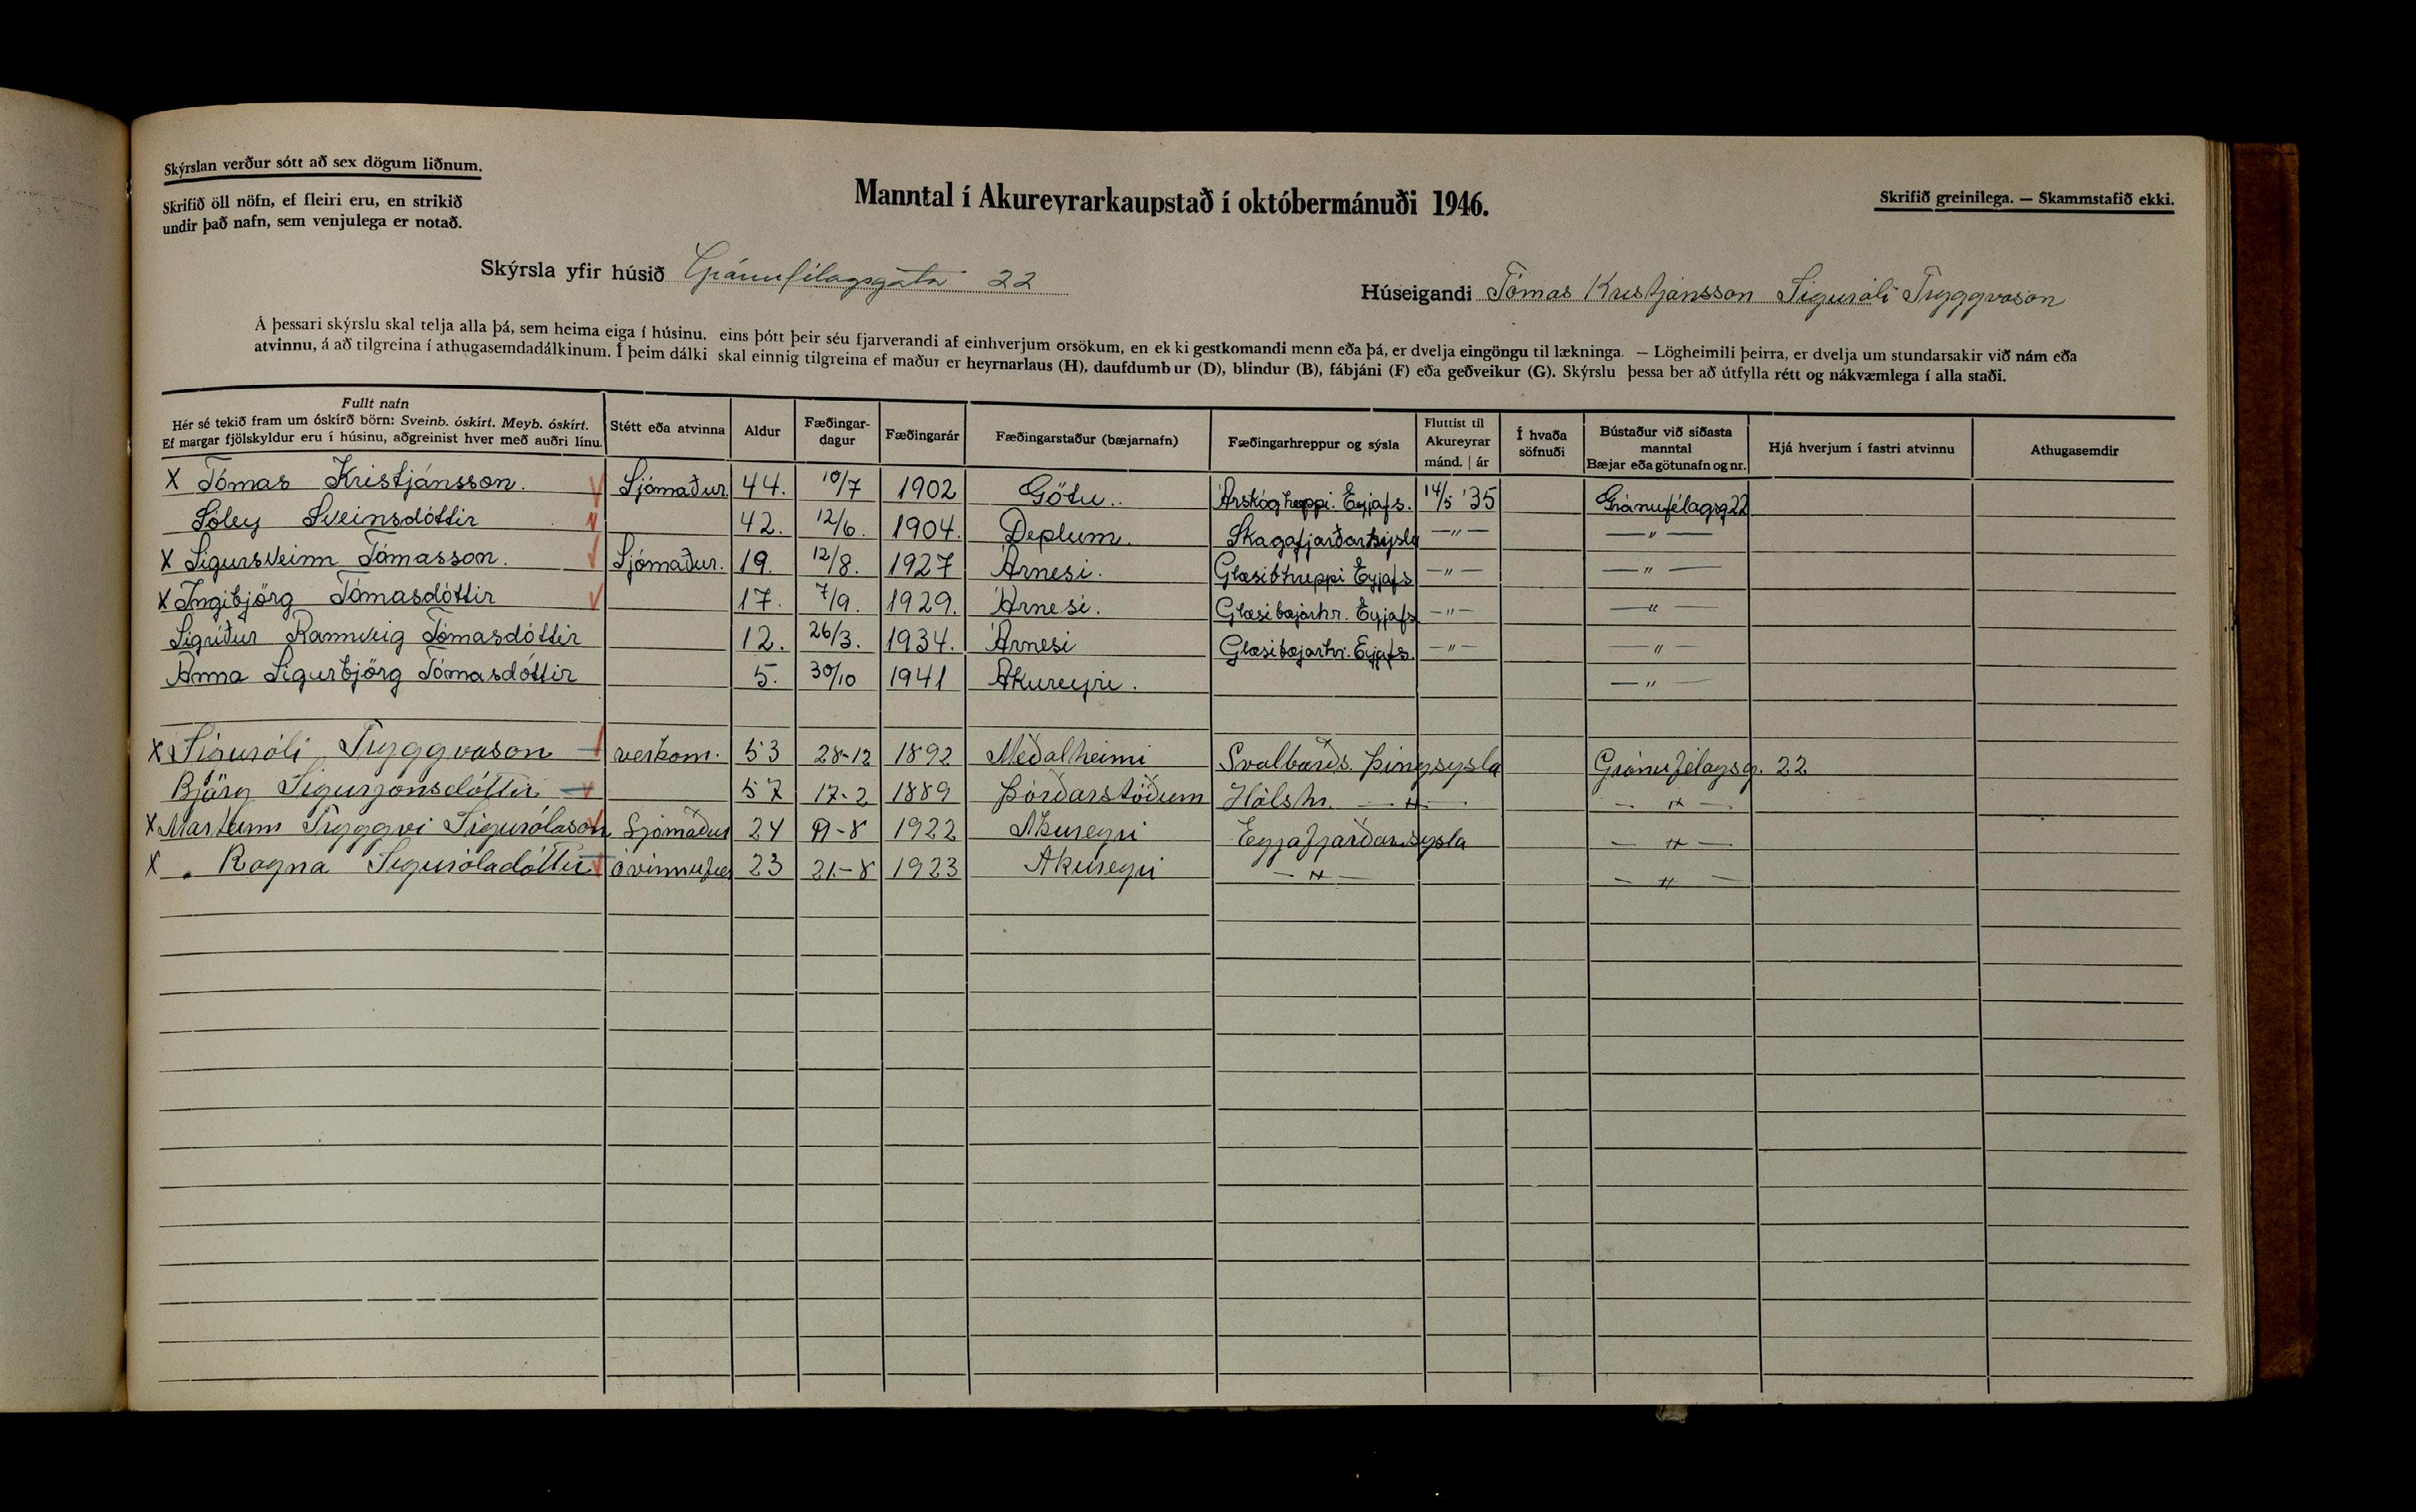 Skýrslan verður sótt að sex dögum liðnum.
Skrifið öll nöfn, ef fleiri eru, en strikið
undir það nafn, sem venjulega er notað.
Manntal í Akureyrarkaupstað í októbermánuði 1946.
Skrifið greinilega. — Skammstafið ekki.
Skýrsla yfir húsið Gránufélagsgata 22
Húseigandi Tómas Kristjánsson Siguróli Tryggvason
Á þessari skýrslu skal telja alla þá, sem heima eiga í húsinu, eins þótt þeir séu fjarverandi af einhverjum orsökum, en ekki gestkomandi menn eða þá, er dvelja eingöngu til lækninga. — Lögheimili þeirra, er dvelja um stundarsakir við nám eða
atvinnu, á að tilgreina í athugasemdadálkinum. Í þeim dálki skal einnig tilgreina ef maður er heyrnarlaus (H), daufdumbur (D), blindur (B), fábjáni (F) eða geðveikur (G). Skýrslu þessa ber að útfylla rétt og nákvæmlega í alla staði.
Fullt nafn
Hér sé tekið fram um óskírð börn: Sveinb. óskírt. Meyb. óskírt.
Ef margar fjölskyldur eru í húsinu, aðgreinist hver með auðri línu.
Stétt eða atvinna
Aldur
Fæðingar-
dagur
Fæðingarár
Fæðingarstaður (bæjarnafn)
Fæðingarhreppur og sýsla
Fluttist til
Akureyrar
mánd. | ár
Í hvaða
söfnuði
Bústaður við síðasta
manntal
Bæjar eða götunafn og nr.
Hjá hverjum í fastri atvinnu
Athugasemdir
X Tómas Kristjánsson. Sjómaður. 44. 10/7 1902 Götu. Árskóghreppi. Eyjafs. 14/5 '35 Gránufélagsg 22
Sóley Sveinsdóttir 42. 12/6. 1904. Deplum. Skagafjarðarsýslu —"— —"—
X Sigursveinn Tómasson. Sjómaður. 19. 12/8. 1927 Árnesi. Glæsibhreppi Eyjafs —"— —"—
X Ingibjörg Tómasdóttir 17. 7/9. 1929. Árnesi. Glæsibæjarhr. Eyjafs —"— —"—
Sigríður Rannveig Tómasdóttir 12. 26/3. 1934. Árnesi Glæsibæjarhr. Eyjafs. —"— —"—
Anna Sigurbjörg Tómasdóttir 5. 30/10 1941 Akureyri. —"—
X Siguróli Tryggvason verkam. 53 28-12 1892 Meðalheimi Svalbarðs. Þingsysla Gránufélagsg. 22
Björg Sigurjónsdóttir 57 17-2 1889 Þórðarstöðum Hálshr. —"— —"—
X Marteinn Tryggvi Sigurólason Sjómaður 24 9-8 1922 Akureyri Eyjafjarðarsysla —"—
X Ragna Siguróladóttir 23 21-8 1923 Akureyri —"— —"—